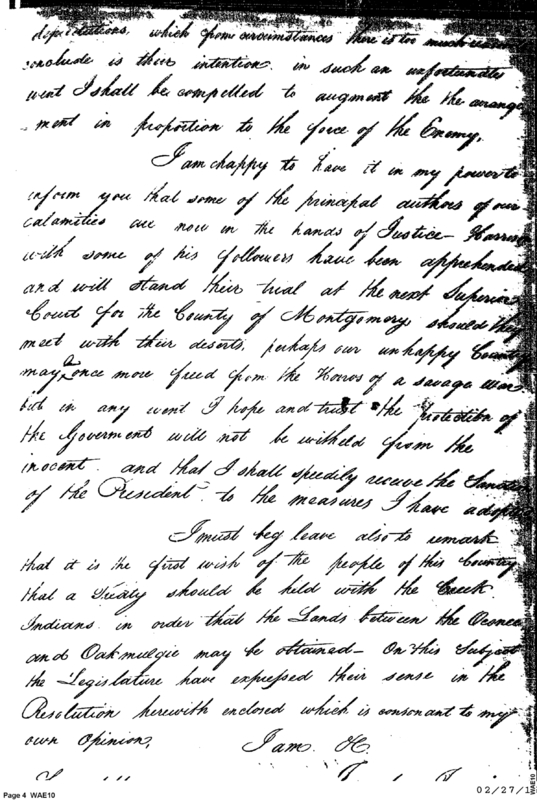 depredations, which from circumstances there is too much reason
conclude is their intention. in such an unfortunate
event I shall be compelled to augment the the arrange
-ment in proportion to the force of the Enemy.
I am happy to have it in my power to
inform you that some of the principal authors of our
calamities are now in the hands of Justice— Harrison
with some of his followers have been apprehended
and will stand their trial at the next Superior
Court for the County of Montgomery should they
meet with their deserts, perhaps our unhappy County
may once more freed from the Horros of a savage war
but in any event I hope and trust the protection of
the Goverment will not be witheld from the
inocent. and that I shall speedily receive the Sanction
of the President to the measures I have adopted
I must beg leave also to remark
that it is the first wish of the people of this Country
that a Treaty should be held with the Creek
Indians in order that the Lands between the Oconee
and Oakmulgie may be obtained— On this Subject
the Legislature have expressed their sense in the
Resolution herewith enclosed which is consonant to my
own Opinion,
I am &c
Page 4 WAE10
02/27/1
WAE10